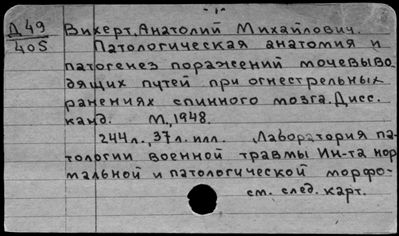 - 1 -
Д 49
405
Викерт, Анатолий Михайлович.
Патологическая анатомия и
патогенез поражений мочевыво-
дящих путей при огнестрельных
ранениях спинного мозга. Дисс.
канд. М., 1948.
244 л., 37 л. илл. Лаборатория па-
тологии военной травмы Ин-та нор
мальной и патологической морфо-
см. след. карт.